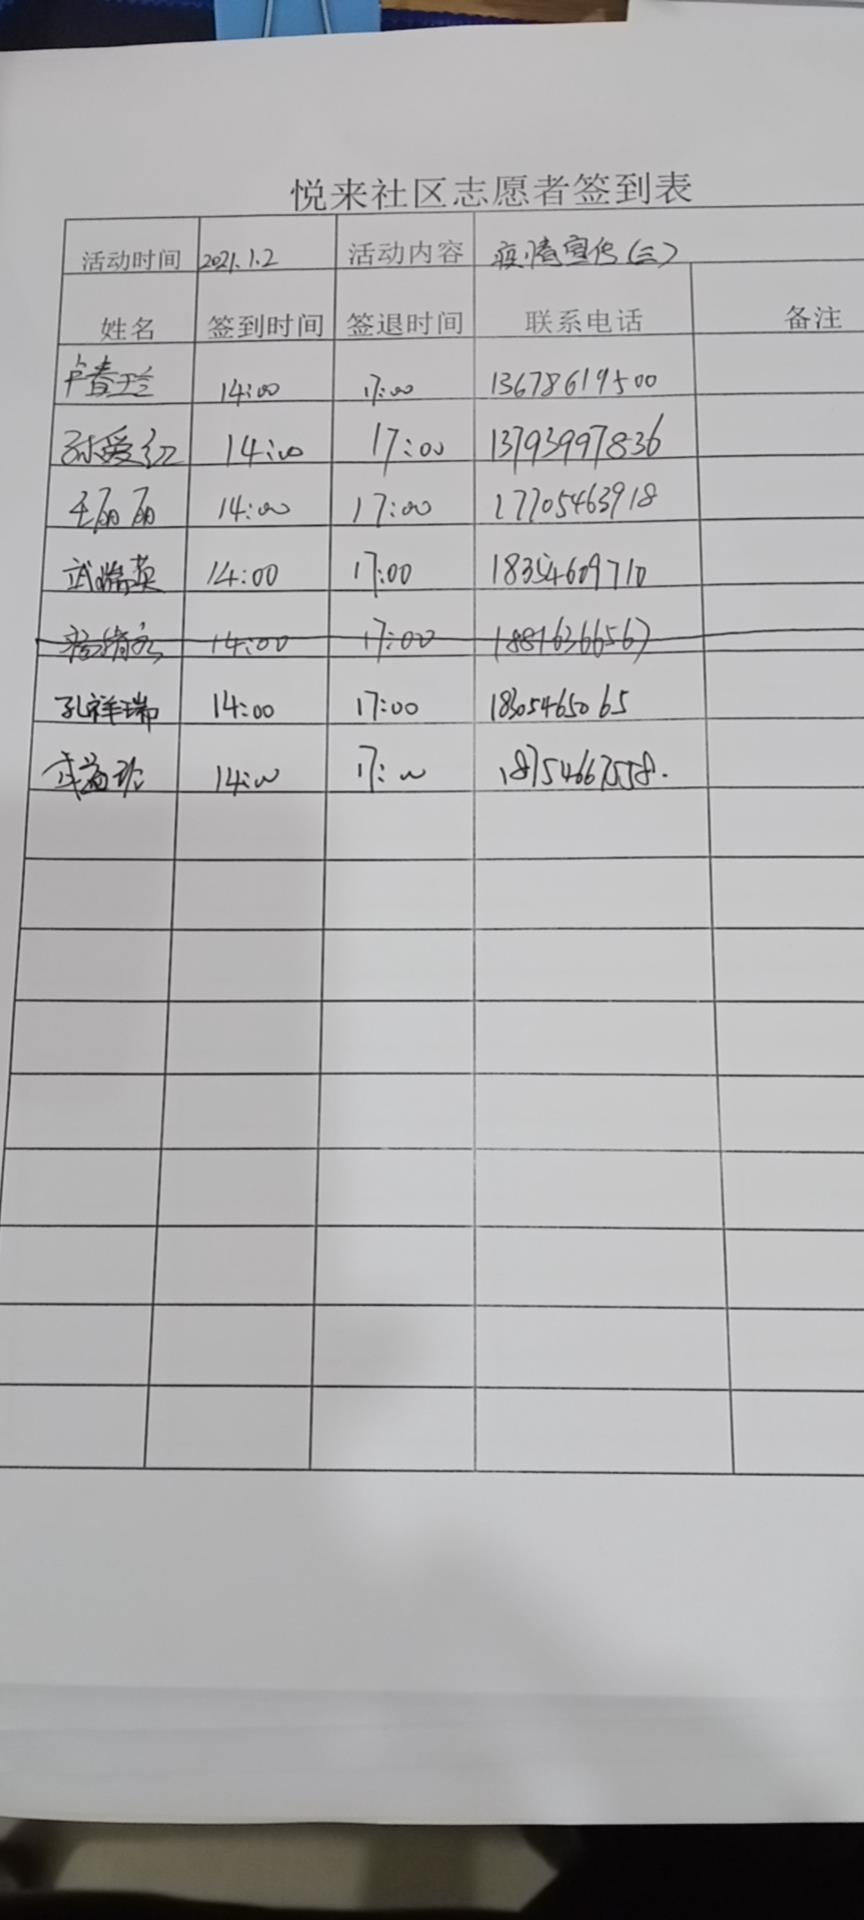 悦来社区志愿者签到表
活动时间 2021.1.2 活动内容 疫情宣传(三)
姓名 签到时间 签退时间 联系电话 备注
卢春兰 14:00 17:00 13678619500
孙爱红 14:00 17:00 13793997836
王丽丽 14:00 17:00 17705463918
武瑞英 14:00 17:00 18354609710
14:00 17:00 18816366567
孔祥瑞 14:00 17:00 18305465065
14:00 17:00 18754667558.